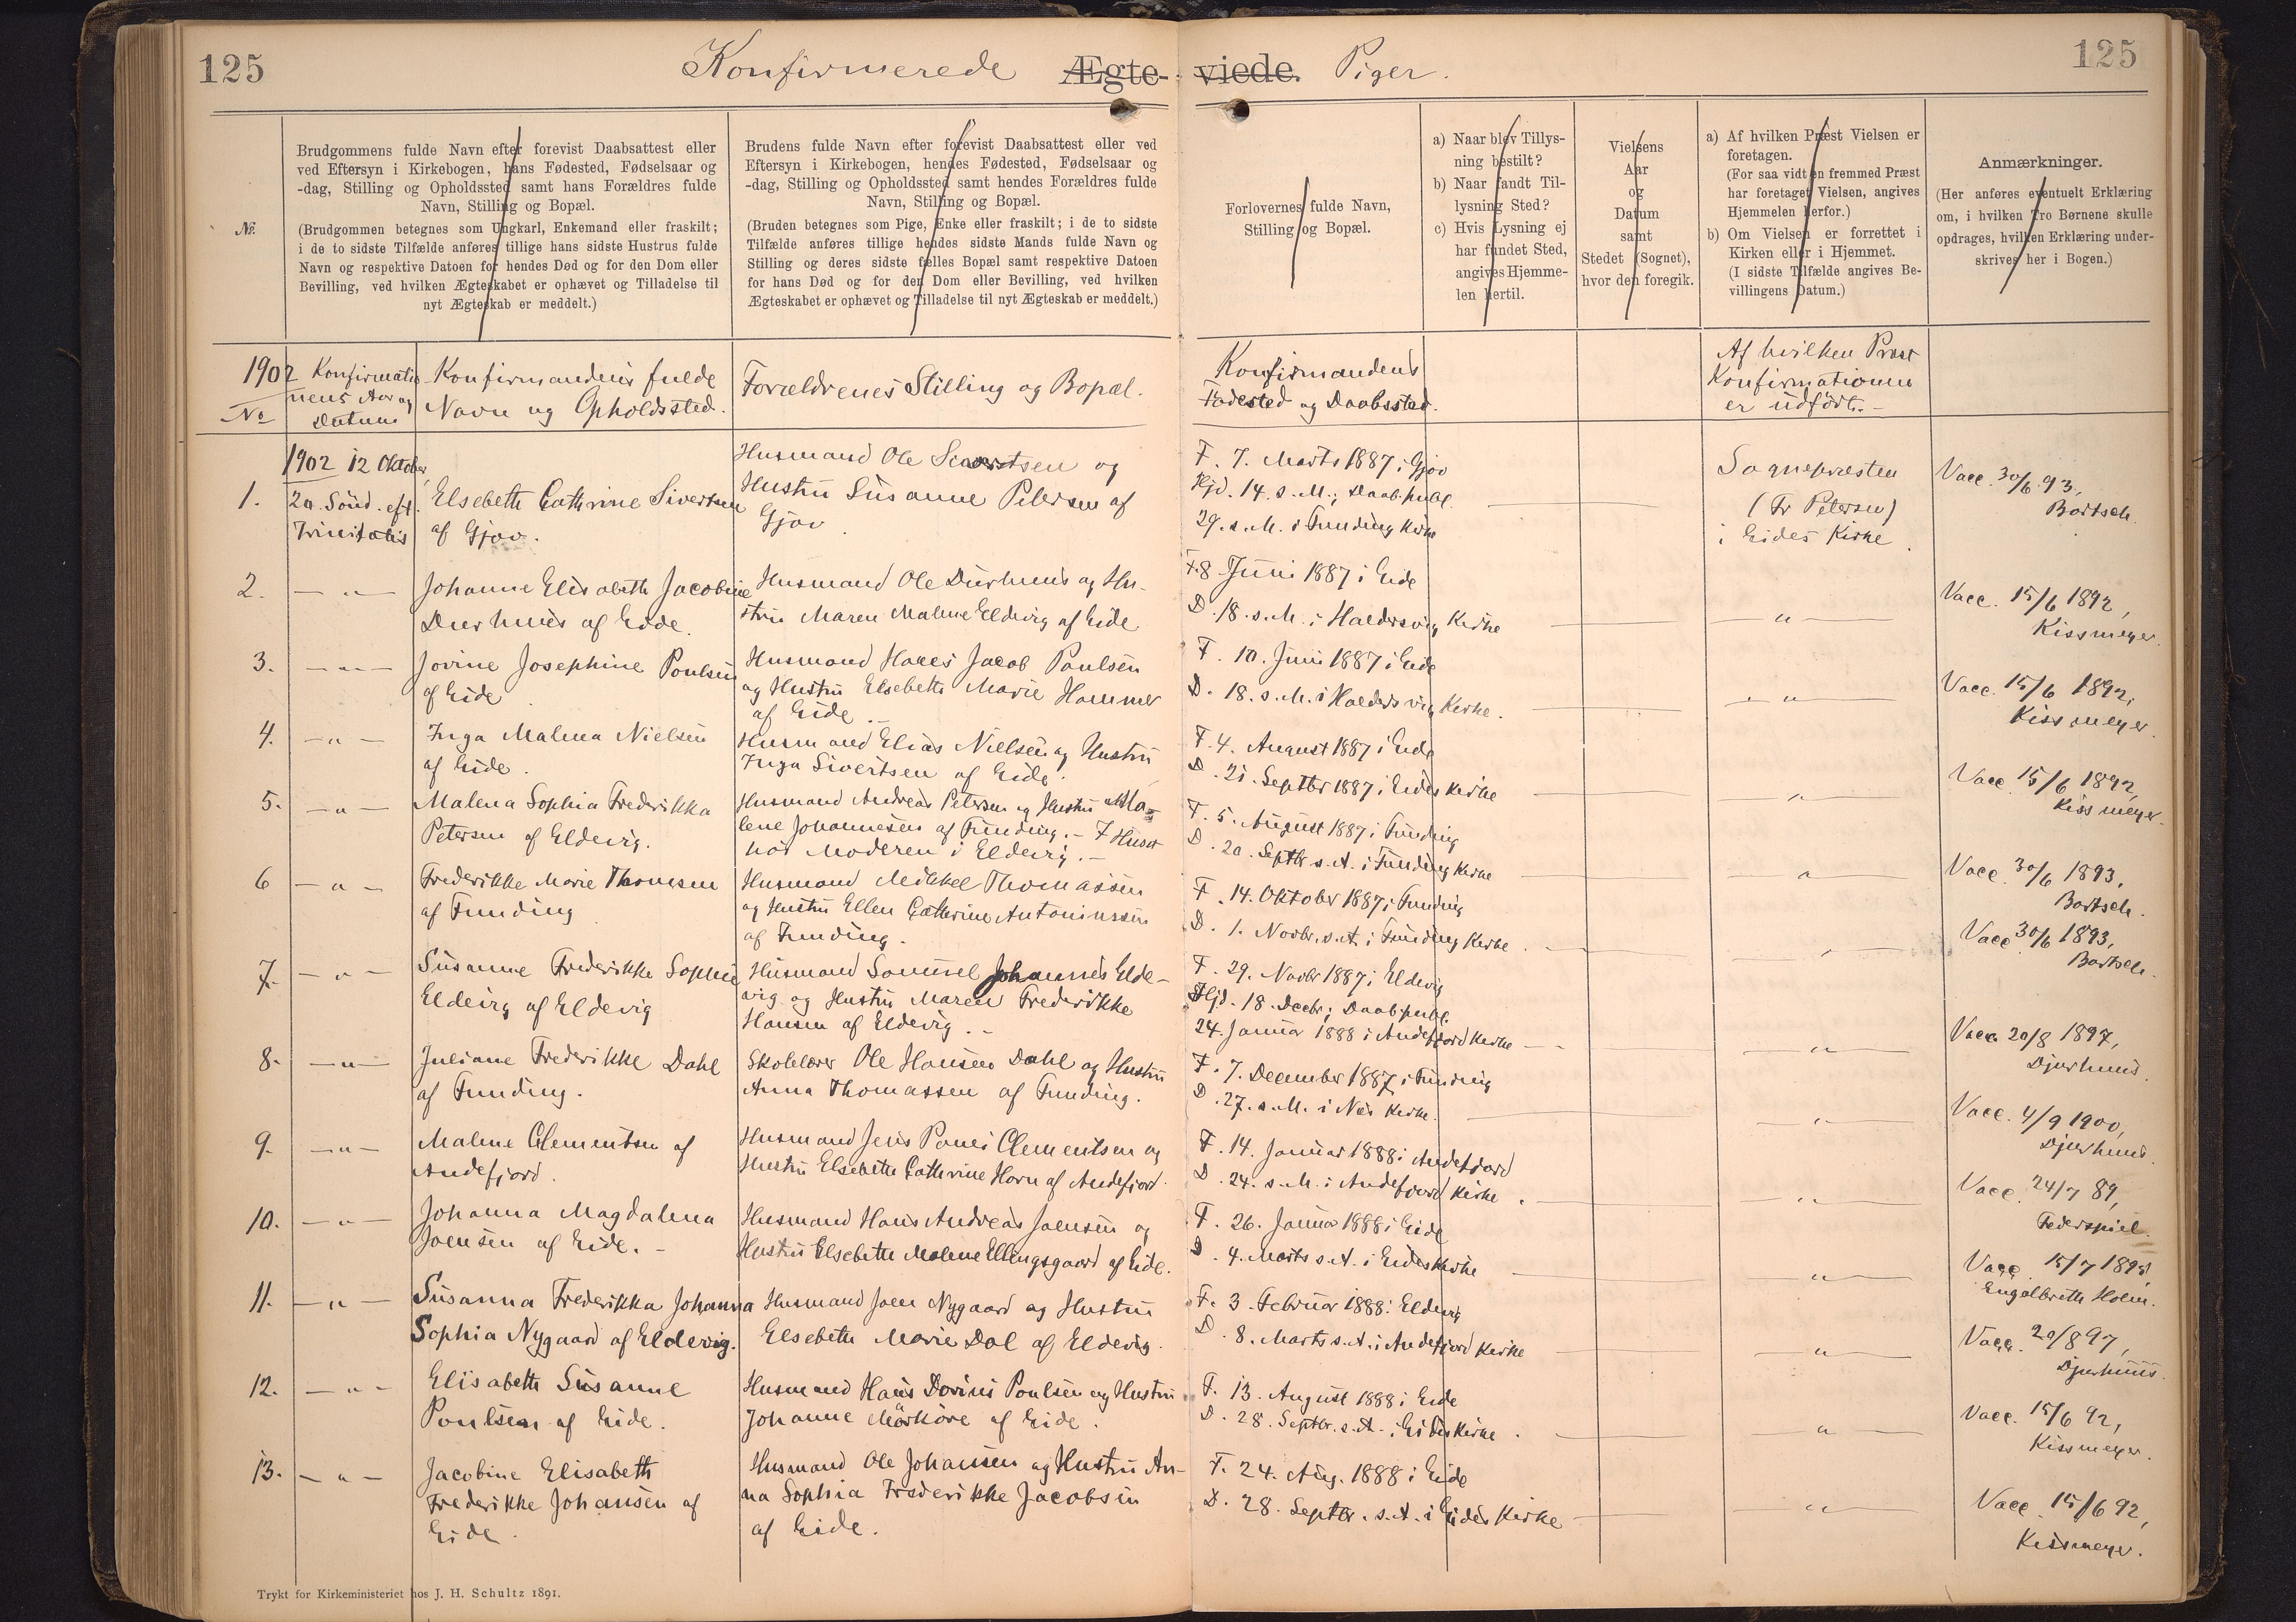 125
Konfirmerede Ægte-viede. Piger.
125
No.
Brudgommens fulde Navn efter forevist Daabsattest eller
ved Eftersyn i Kirkebogen, hans Fødested, Fødselsaar og
-dag, Stilling og Opholdssted samt hans Forældres fulde
Navn, Stilling og Bopæl.
(Brudgommen betegnes som Ungkarl, Enkemand eller fraskilt;
i de to sidste Tilfælde anføres tillige hans sidste Hustrus fulde
Navn og respektive Datoen for hendes Død og for den Dom eller
Bevilling, ved hvilken Ægteskabet er ophævet og Tilladelse til
nyt Ægteskab er meddelt.)
Brudens fulde Navn efter forevist Daabsattest eller ved
Eftersyn i Kirkebogen, hendes Fødested, Fødselsaar og
-dag, Stilling og Opholdssted samt hendes Forældres fulde
Navn, Stilling og Bopæl.
(Bruden betegnes som Pige, Enke eller fraskilt; i de to sidste
Tilfælde anføres tillige hendes sidste Mands fulde Navn og
Stilling og deres sidste fælles Bopæl samt respektive Datoen
for hans Død og for den Dom eller Bevilling, ved hvilken
Ægteskabet er ophævet og Tilladelse til nyt Ægteskab er meddelt.)
Forlovernes fulde Navn,
Stilling og Bopæl.
a) Naar blev Tillys-
ning bestilt?
b) Naar fandt Til-
lysning Sted?
c) Hvis Lysning ej
har fundet Sted,
angives Hjemme-
len hertil.
Vielsens
Aar
og
Datum
samt
Stedet (Sognet),
hvor den foregik.
a) Af hvilken Præst Vielsen er
foretagen.
(For saa vidt en fremmed Præst
har foretaget Vielsen, angives
Hjemmelen herfor.)
b) Om Vielsen er forrettet i
Kirken eller i Hjemmet.
(I sidste Tilfælde angives Be-
villingens Datum.)
Anmærkninger.
(Her anføres eventuelt Erklæring
om, i hvilken Tro Børnene skulle
opdrages, hvilken Erklæring under-
skrives her i Bogen.)
1902
No
Konfirmatio
nens Aar og
Datum
Konfirmandens fulde
Navn og Opholdssted.
Forældrenes Stilling og Bopæl.
Konfirmandens
Fødested og Daabssted.
Af hvilken Præst
Konfirmationen
er udført.-
1.
1902 12 Oktober,
20. Sönd. eft.
Trinitatis
Elsebeth Cathrine Sivertsen
af Gjov.
Husmand Ole Sivertsen og
Hustru Susanne Petersen af
Gjov.
F. 7. Marts 1887 i Gjov
Hjd. 14. s. M.; Daab publ.
29. s. M. i Funding Kirke
Sognepræsten
(Fr Petersen)
i Eides Kirke.
Vacc. 30/6 93,
Bartsch.
2. -"-
Johanne Elisabeth Jacobine
Durhuus af Eide.
Husmand Ole Durhuus og Hu-
stru Maren Malene Eldevig af Eide
F. 8 Juni 1887 i Eide
D. 18. s. M. i Haldersvig Kirke
"
Vacc. 15/6 1892,
Kissmeyer.
3. -"-
Jovine Josephine Poulsen
af Eide.
Husmand Hans Jacob Poulsen
og Hustru Elsebeth Marie Hammer
af Eide.-
F. 10. Juni 1887 i Eide
D. 18. s. M. i Haldersvig Kirke.
"
Vacc. 15/6 1892,
Kissmeyer.
4. -"-
Inga Malena Nielsen
af Eide.
Husmand Elias Nielsen og Hustru
Inga Sivertsen af Eide.
F. 4. August 1887 i Eide
D. 21. Septbr 1887 i Eides Kirke
"
Vacc. 15/6 1892,
Kissmeyer.
5. -"-
Malena Sophia Frederikka
Petersen af Eldevig.
Husmand Andreas Petersen og Hustru Ma-
lene Johannesen af Funding.- I Huset
hos Moderen i Eldevig.-
F. 5. August 1887 i Funding
D. 20. Septbr s. A. i Funding Kirke
"
Vacc. 30/6 1893,
Bartsch.
6 -"-
Frederikke Marie Thomsen
af Funding
Husmand Mikkel Thomassen
og Hustru Ellen Cathrine Antoniussen
af Funding.
F. 14. Oktober 1887 i Funding
D. 1. Novbr. s. A. i Funding Kirke.
"
Vacc. 30/6 1893,
Bartsch.
7. -"-
Susanne Frederikke Sophie
Eldevig af Eldevig
Husmand Samuel Johannes Elde-
vig og Hustru Maren Frederikke
Hansen af Eldevig.-
F. 29. Novbr 1887 i Eldevig
Hjd. 18. Decbr; Daab publ.
24. Januar 1888 i Andefjord Kirke
"
Vacc. 20/8 1897,
Djurhuus.
8. -"-
Juliane Frederikke Dahl
af Funding.
Skolelærer Ole Hansen Dahl og Hustru
Anna Thomassen af Funding.
F. 7. December 1887 i Funding
D. 27. s. M. i Næs Kirke.
"
Vacc. 4/9 1900,
Djurhuus.
9. -"-
Malene Clementsen af
Andefjord.
Husmand Jens Pauli Clementsen og
Hustru Elsebeth Cathrine Horn af Andefjord.
F. 14. Januar 1888 i Andefjord
D. 24. s. M. i Andefjord Kirke.
"
Vacc. 24/7 89,
Federspiel.
10. -"-
Johanna Magdalena
Joensen af Eide.-
Husmand Hans Andreas Joensen og
Hustru Elsebeth Malene Ellingsgaard af Eide.
F. 26. Januar 1888 i Eide
D. 4. Marts s. A. i Eides Kirke
"
Vacc. 15/7 1895,
Engelbreth Holm.
11. -"-
Susanna Frederikka Johanna
Sophia Nygaard af Eldevig.
Husmand Joen Nygaard og Hustru
Elsebeth Marie Dal af Eldevig.
F. 3. Februar 1888 i Eldevig
D. 8. Marts s. A. i Andefjord Kirke
"
Vacc. 20/8 97,
Djurhuus.
12. -"-
Elisabeth Susanne
Poulsen af Eide.
Husmand Hans Dorius Poulsen og Hustru
Johanne Mörköre af Eide.
F. 13. August 1888 i Eide
D. 28. Septbr. s. A. i Eides Kirke.
"
Vacc. 15/6 92,
Kissmeyer.
13. -"-
Jacobine Elisabeth
Frederikke Johansen af
Eide.
Husmand Ole Johansen og Hustru An-
na Sophia Frederikke Jacobsen
af Eide.
F. 24. Aug. 1888 i Eide
D. 28. Septbr. s. A. i Eides Kirke
"
Vacc. 15/6 92,
Kissmeyer.
Trykt for Kirkeministeriet hos J. H. Schultz 1891.